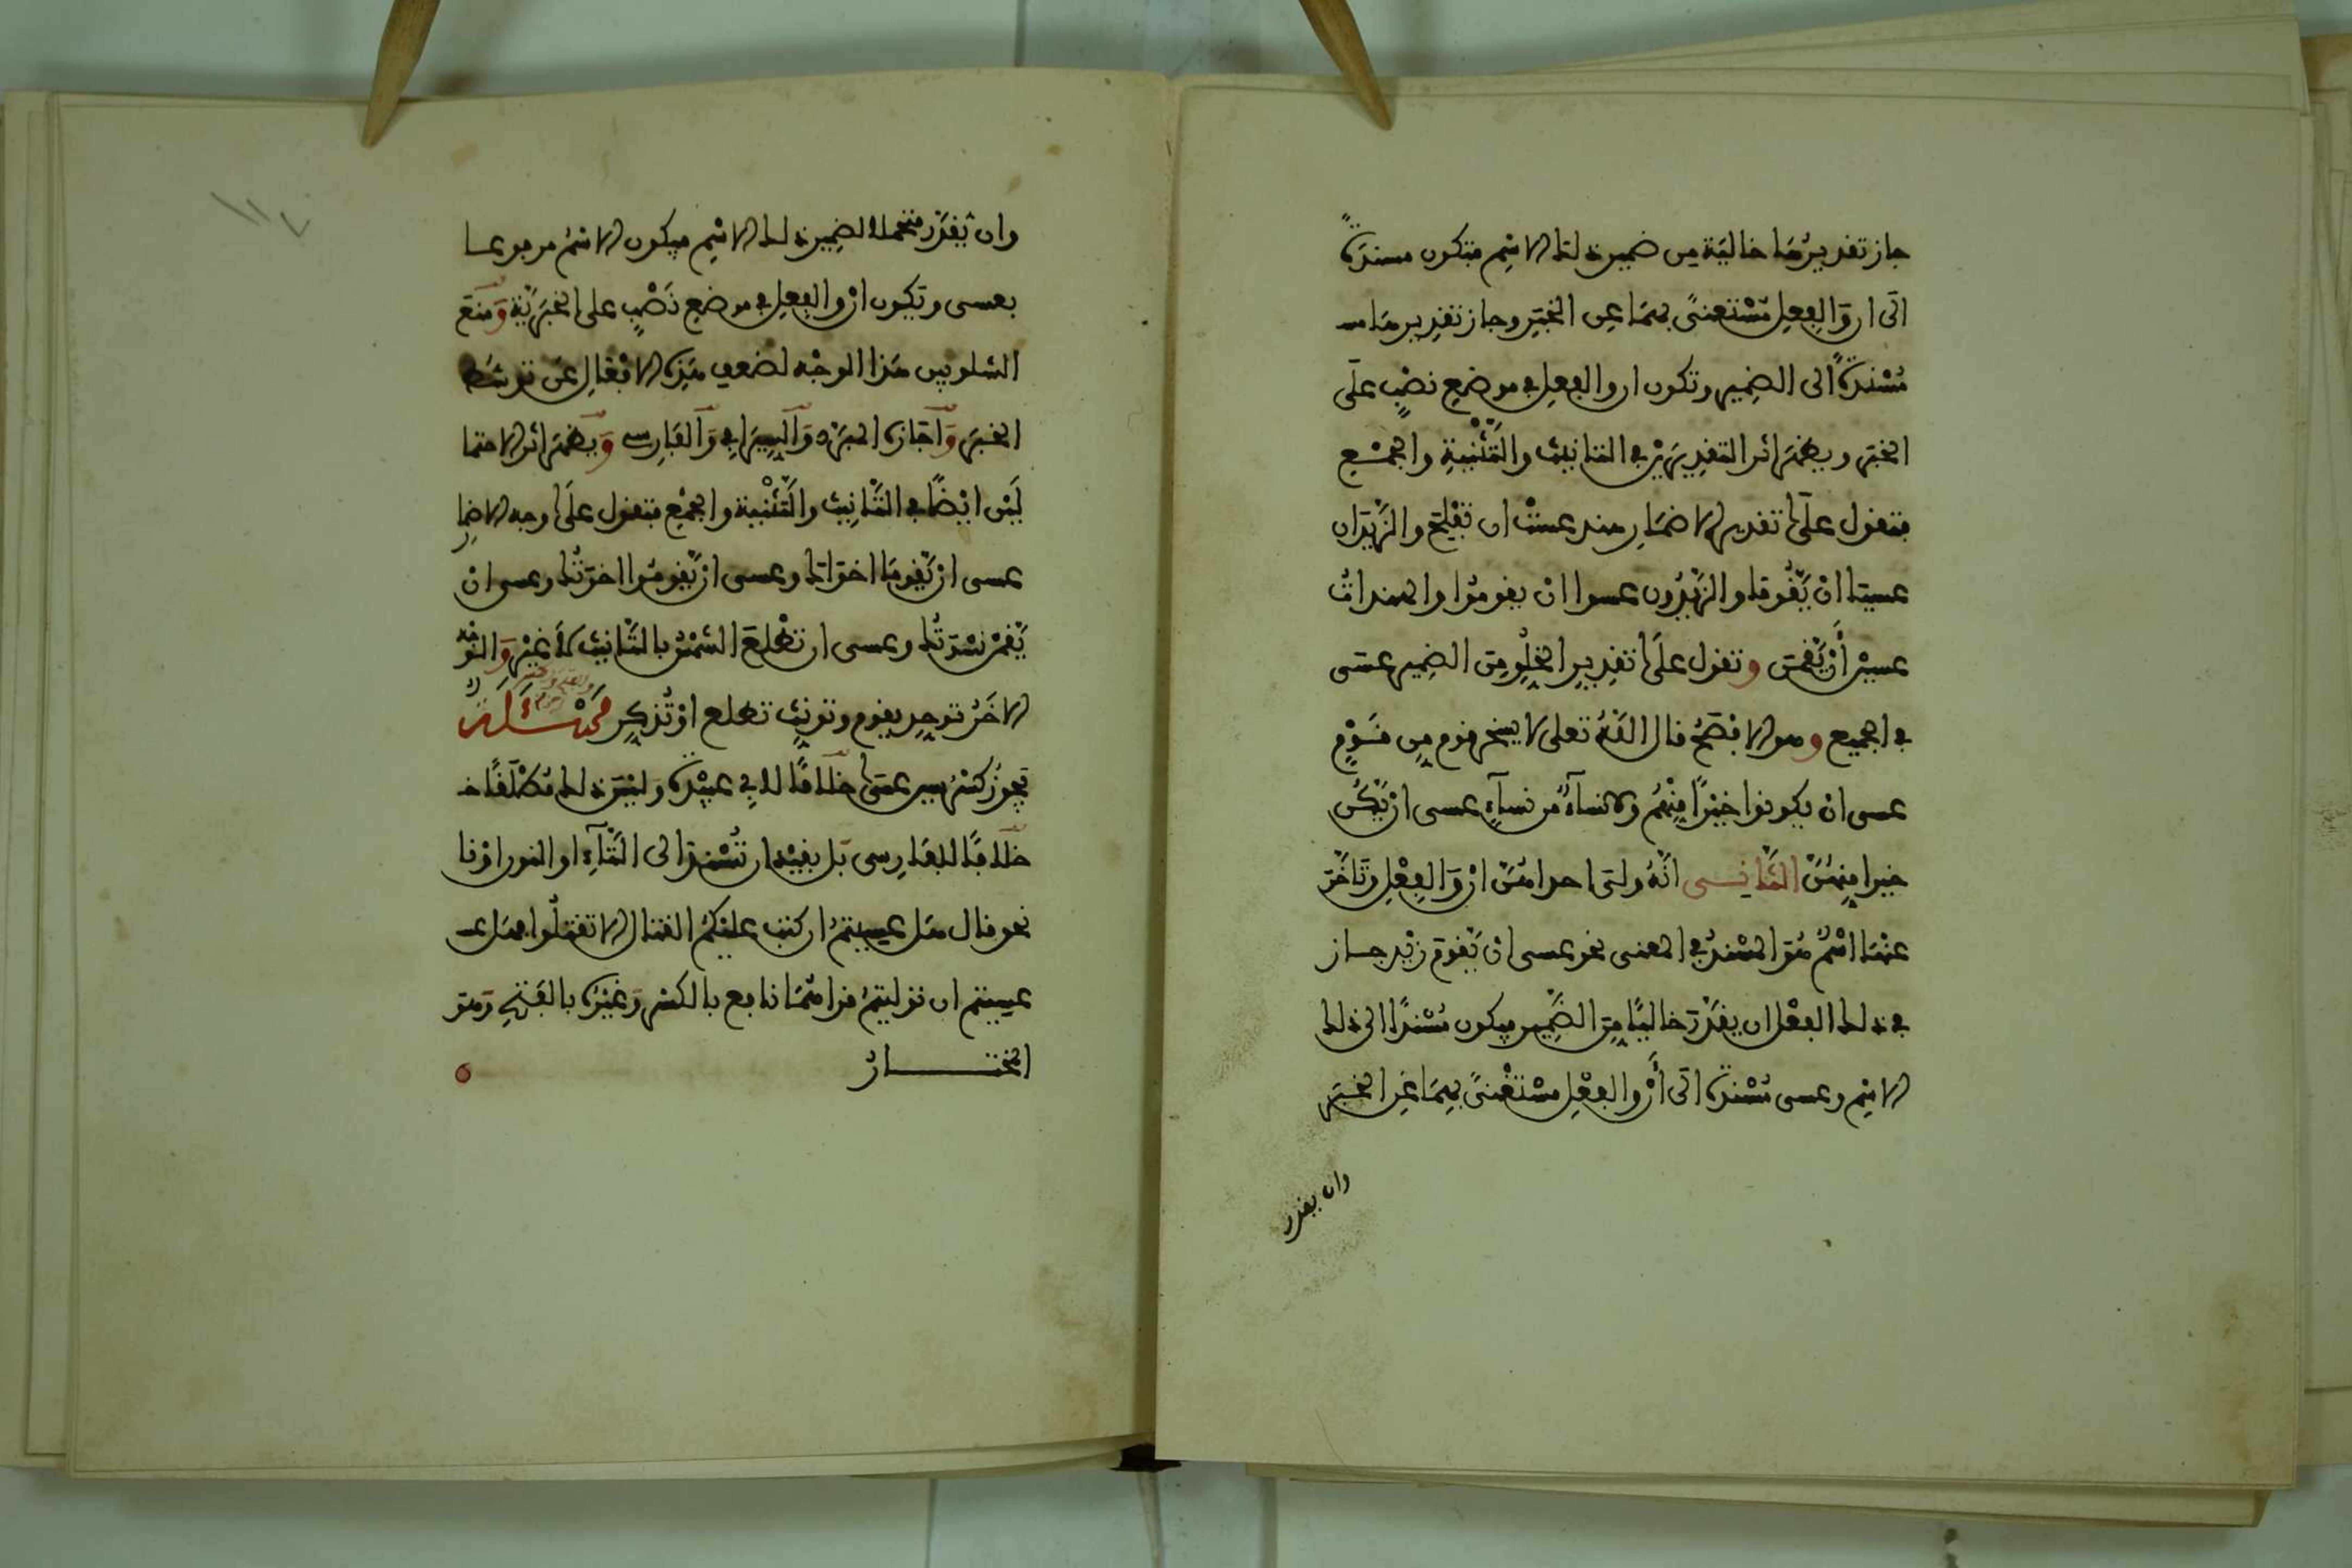 جاز تقديرُها خاليَة مِن ضميرِ ذلك الاسْمِ فتكون مسندةً
الى ان وَالفِعلِ مُسْتغنىً بهمَا عن الخبَرِ وجاز تقدِيرها
مُسْندةً الى الضمِير وتكون ان والفِعل في موضعِ نصْبٍ على
الخبَر ويظهَر اثر التقدِيرَيْن في التانيث والتَّثْنيةِ والجمْعِ
فتقول على تقدير الاضمَار هند عسَتْ ان تفْلِحَ والزَّيْدَان
عسيَا انْ يَّقُومَا والزَّيْدُون عسوا انْ يقومُوا والهندَاتُ
عسيْن أَنْ يَّقُمنَ وتقول على تقدِيرِ الخُلُوِّ مِنَ الضمِير عسَى
في الجميع وهو الافصَحُ قال اللّهُ تعلى لا يسخر قوم مِن قَوْمٍ
عسى ان يكونوا خيْراً مِنْهُمْ ولا نسآءٌ من نسآءٍ عسى ان يَّكُنَّ
خيرا مِنهُنَّ الثَّانِي انَّهُ ولى احداهُنَّ انْ وَالفِعْل وتَاخّرَ
عنْهَا اسْمٌ هُوَ المسْندُ في المعنى نحو عسى انْ يَّقومَ زيْد جاز
في ذلك الفِعْل ان يقدَّرَ خاليًا مِنَ الضَّمِير فيكون مُسْندًا الى ذلك
الاسْمِ وعسى مُسْندةٌ الى أنْ والفِعْلِ مسْتَغْنىً بهِمَا عَنِ الخبَر
وان يقدر
وان يُقدَّر متحملا لضميرِ ذلك الاسْمِ فيكون الاسْمُ مرفوعا
بعسى وتكون انْ والفِعل في موضعِ نَصْبٍ على الخبَرِيّة وَمَنَعَ
الشلوبين هَذا الوجْه لضعفِ هَذِه الافْعَالِ عَن توسُّط
الخبَر وَاَجَازَه المبَرّد وَالسِّيرَافِي وَالفَارِسي وَيظهَر اثر الاحتما
لَيْن ايْضًا في التَّانِيث والتَّثْنِية والجمْعِ فتقول علَى وجه الاضما
ر
عسى انْ يَّقومَا اخوَاك وعسى انْ يَّقومُوا اخوَتُك وعسى انْ
يَّقُمْن نسْوَتُك وعسى ان تطْلعَ الشَّمْسُ بالتَّانيث لا غيْر وَالوجْه
الاخَرُ توحِد يقوم وتونِّث تطلع اوْ تُذكِّر مَسْئَلَة
يَجوزُ كسْر سِين عسَى خلافًا لابِي عبيْدة وليْسَ ذلك مُطْلَقًا
خلافًا للفَارِسي بَل يقيّد ان تُسْندَ الى التَّآءِ او النون اوْ نا
نحو قال هَل عسِيتمْ ان كتب عليْكمُ القتال الا تقتلُوا فهَل عسـ
عسِيتم ان توليتمْ قراهُمَا نافع بالكسْر وَغيْرُه بالفَتْحِ وَهوَ
المختــــــارُ
١١٧